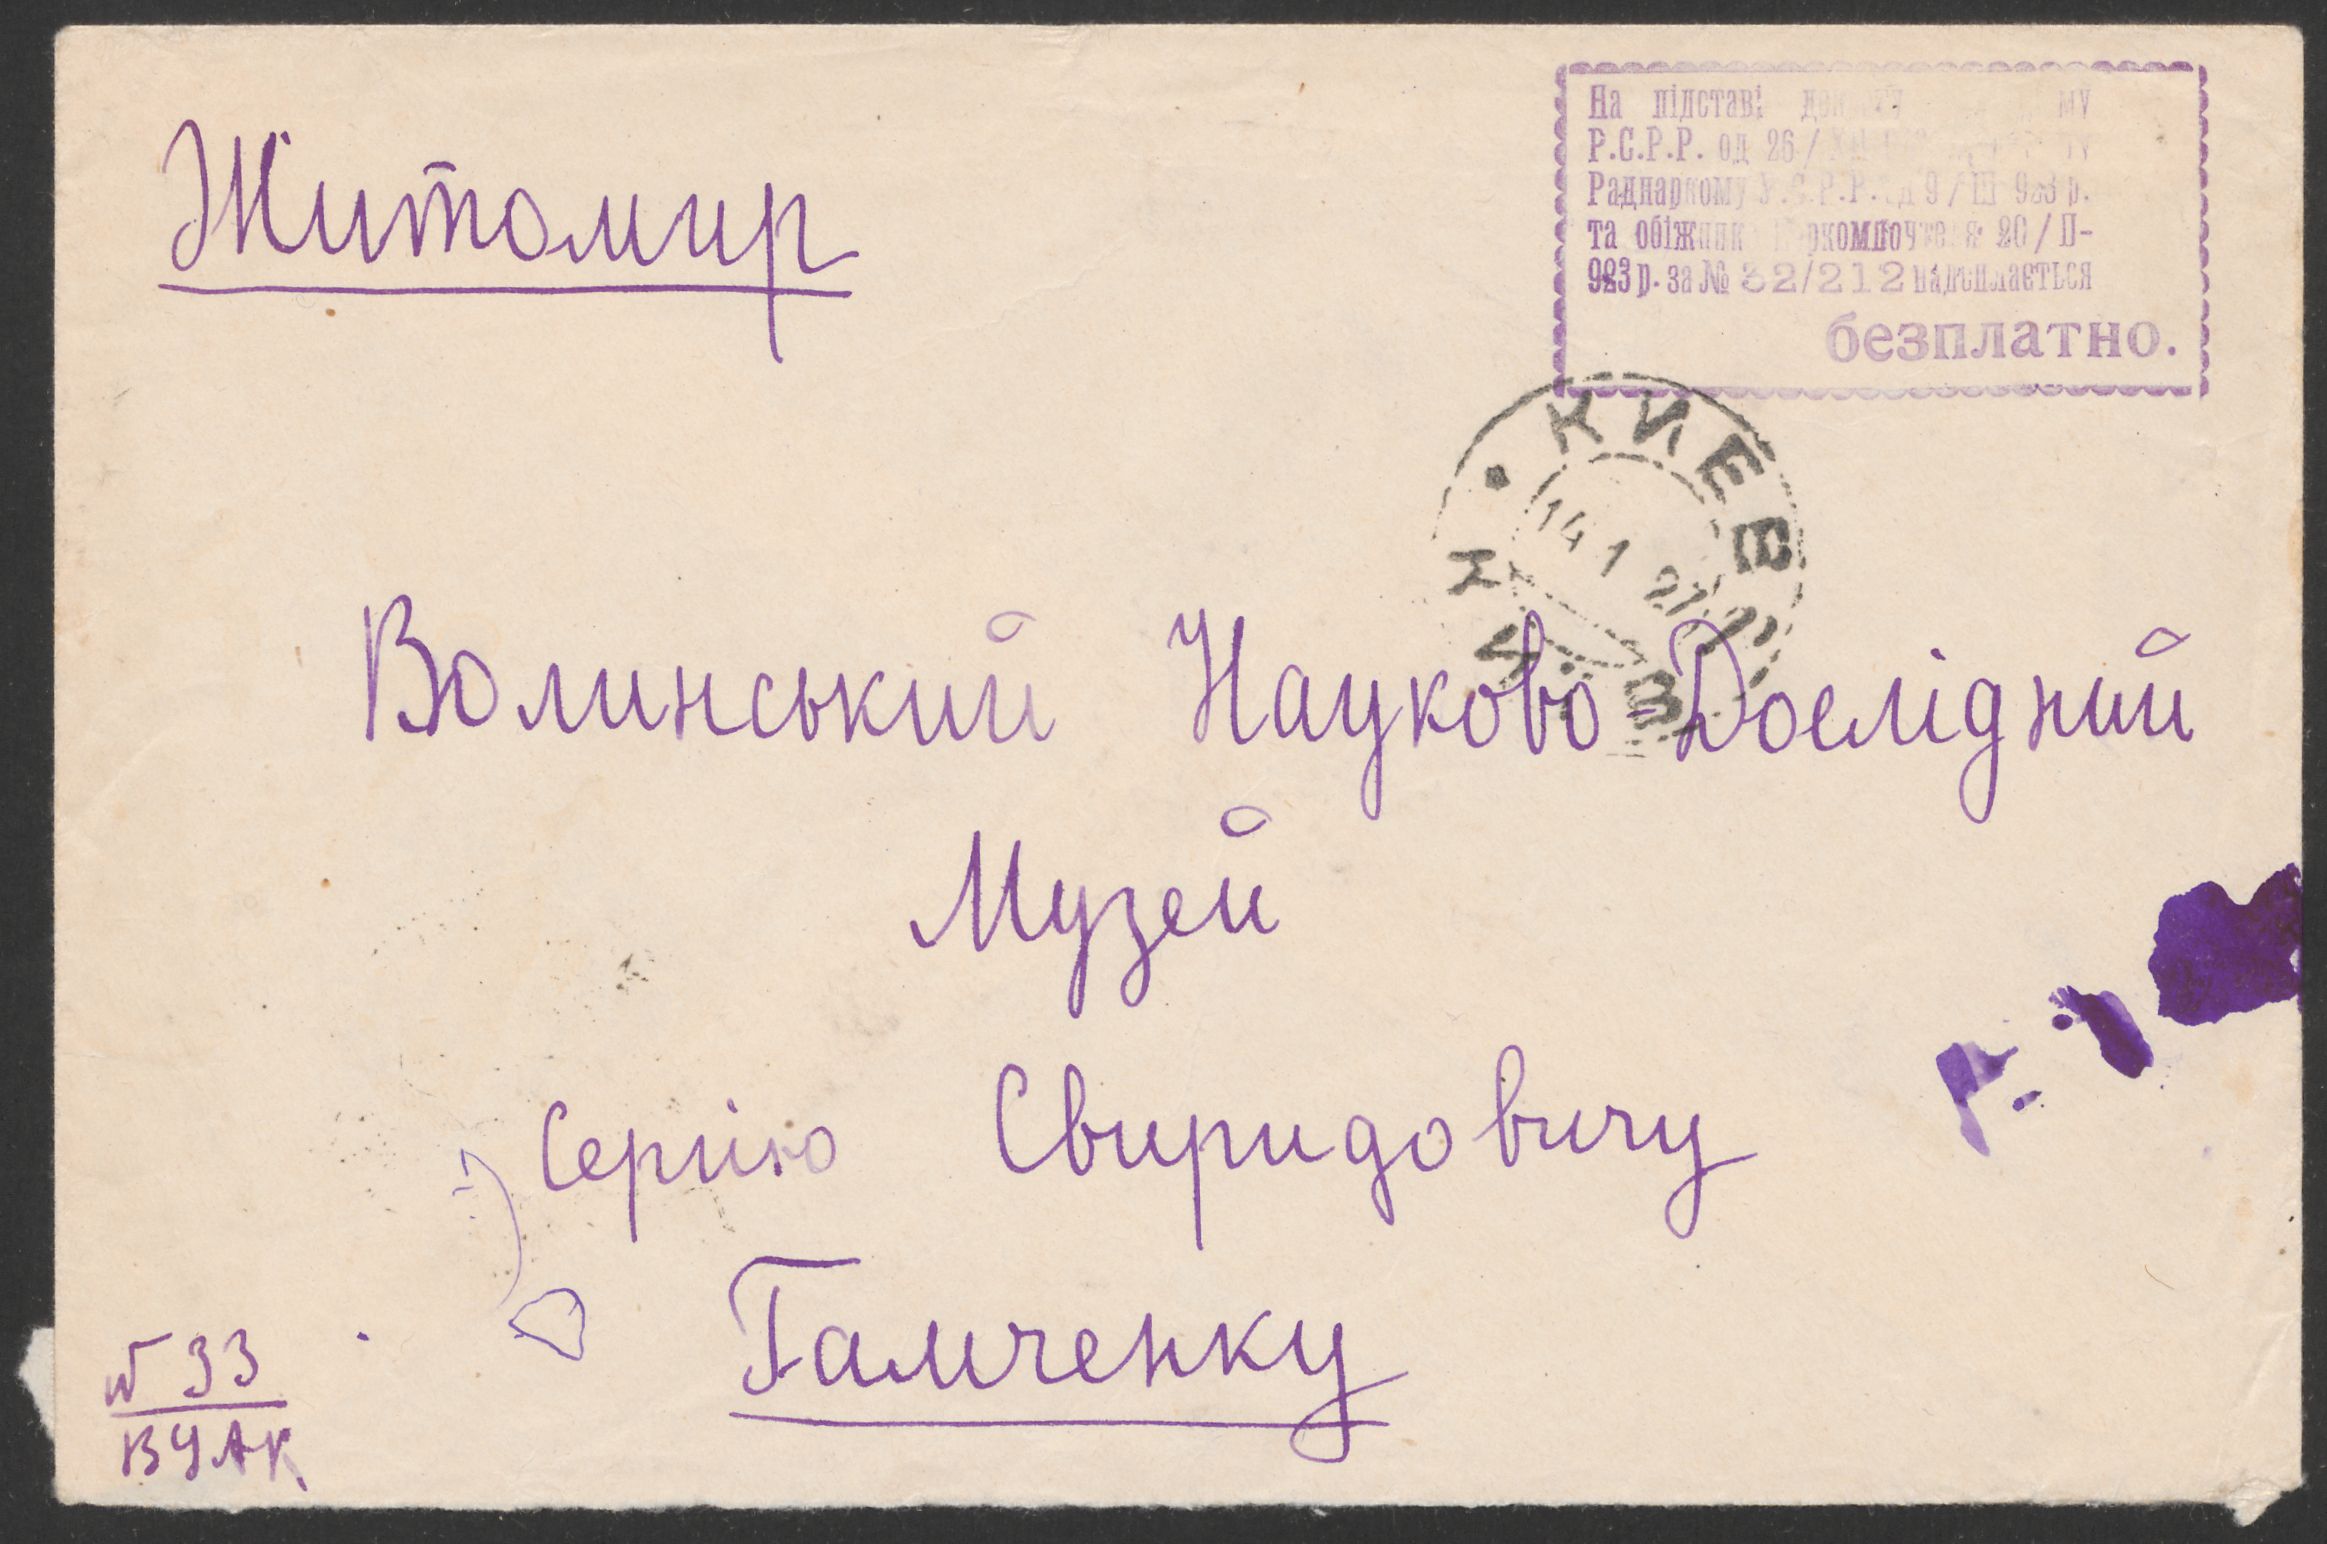 Житомир
На підставі
Р.С.Р.Р. од 26/
Раднаркому У.С.Р.Р. од 9/III 923 р.
та обіжник Наркомпочтеля 20/II-
923 р. за № 32/212 надсилається
безплатно.
КИЕВ
14 1 27
КИЇВ
Волинський Науково-Дослідний
Музей
Сергію Свиридовичу
Гамченку
№ 33
ВУАК